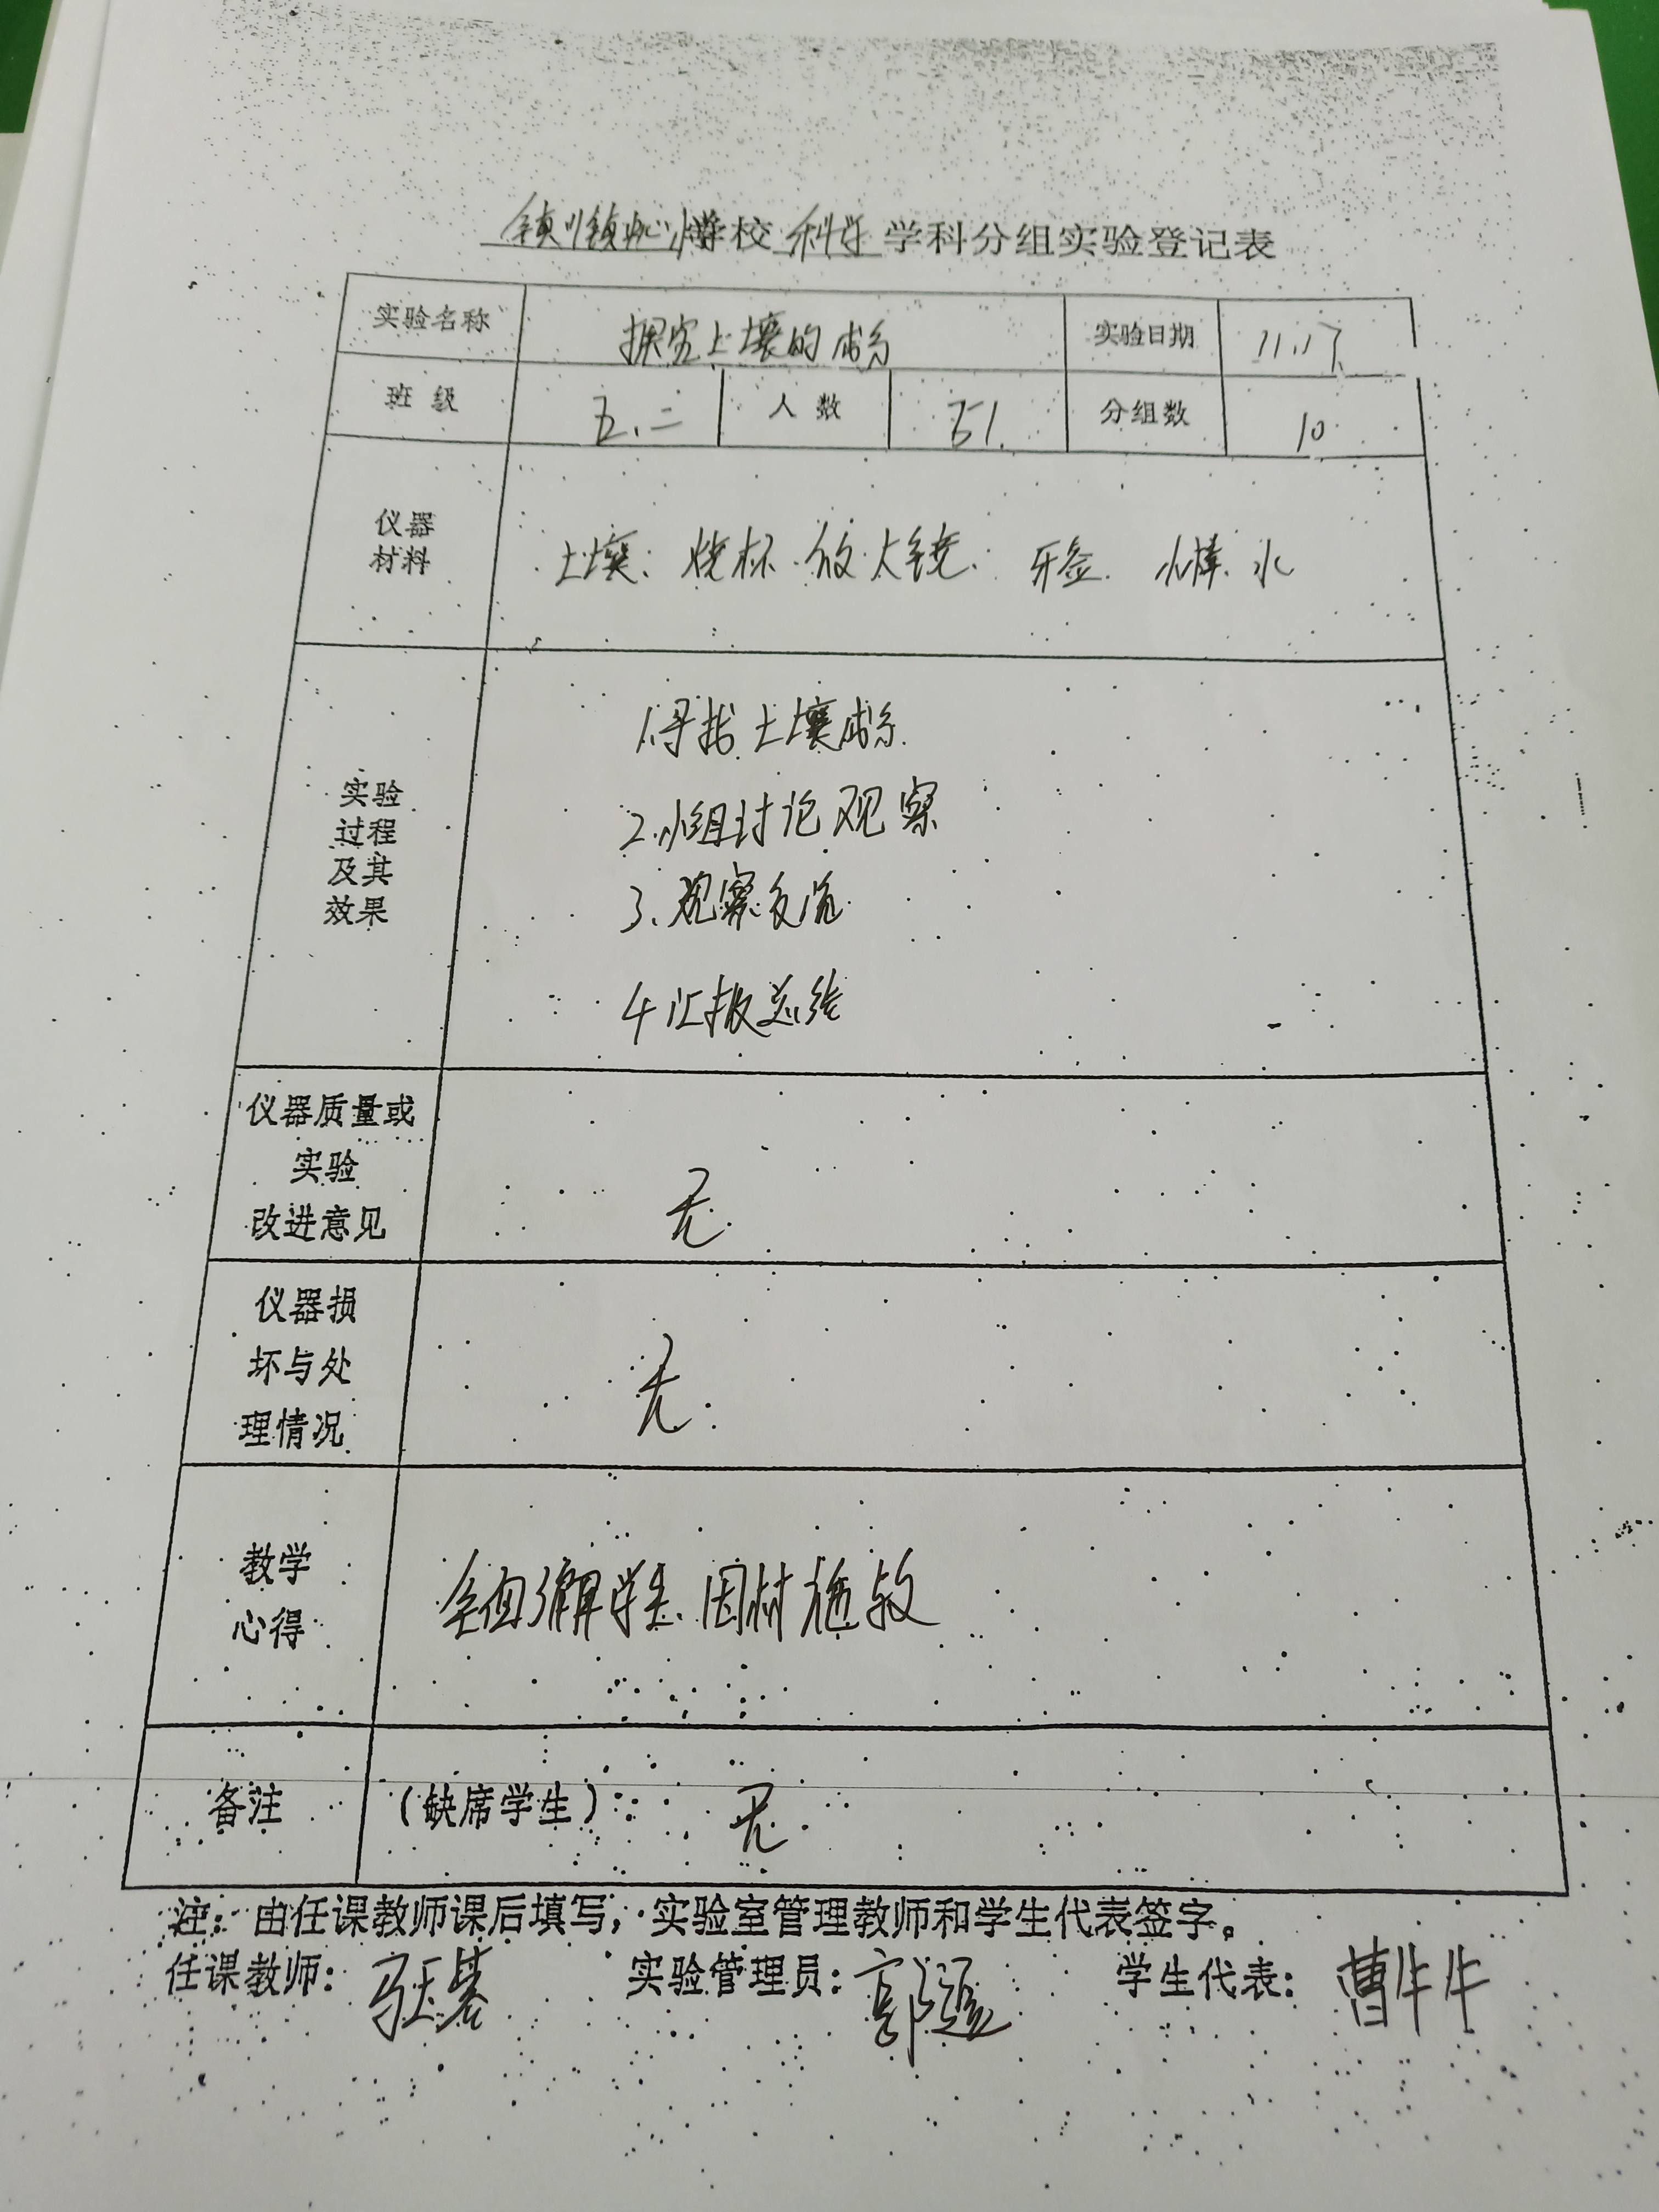 镇川镇中心小学学校 科学 学科分组实验登记表
实验名称 探究土壤的成分 实验日期 11.17
班级 五.二 人数 51. 分组数 10
仪器
材料
土壤. 烧杯. 放大镜. 牙签. 小棒. 水
实验
过程
及其
效果
1.寻找土壤成分.
2.小组讨论观察
3.观察交流
4.汇报总结
仪器质量或
实验
改进意见
无.
仪器损
坏与处
理情况
无.
教学
心得
全面了解学生.因材施教
备注 (缺席学生): 无.
注: 由任课教师课后填写,实验室管理教师和学生代表签字。
任课教师: 实验管理员: 学生代表: 曹牛牛